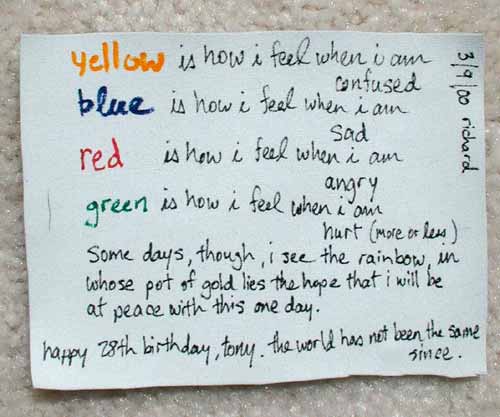 yellow is how i feel when i am
confused
blue is how i feel when i am
sad
red is how i feel when i am
angry
green is how i feel when i am
hurt (more or less)
Some days, though, i see the rainbow, in
whose pot of gold lies the hope that i will be
at peace with this one day.
happy 28th birthday, tony. the world has not been the same
since.
3/9/00 richard